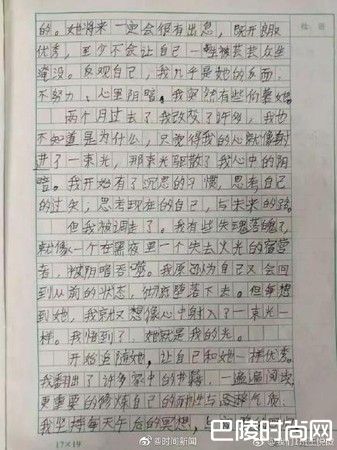 批语
的。她将来一定会很有出息，既开朗又
优秀，至少不会让自己一生被芸芸众生
淹没。反观自己，我几乎是她的反面，
不努力、心里阴暗。我突然有些仰慕她。
两个月过去了我改变了许多，我也
不知道是为什么，只觉得我的心就像射
进了一束光，那束光驱散了我心中的阴
暗。我开始有了沉思的习惯，思考自己
的过失，思考现在的自己，与未来的路。
但我被调走了。我有些失魂落魄了，
就像一个在黑夜里一个失去火光的
者，被阴暗吞噬。我原以为自己又会回
到从前的状态，彻底堕落下去。但每想
到她，我就又想像心中射入了一束光一
样。我悟到了，她就是我的光。
开始追随她，让自己和她一样优秀。
我翻出了许多家中的书籍，一遍遍阅读
更重要的修炼自己的
我坚持每天午后的冥想，
17×14
@时间新闻
巴陵时尚网